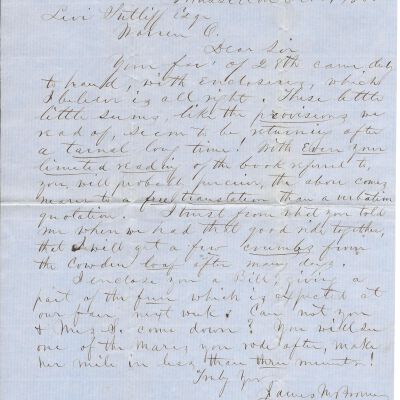 Levi Sutliff Esqr
Warren O.
Dear Sir
Your fav' of 28th came, duly
to hand, with enclosures, which
I believe is all right. These little
little sums, like the provisions we
read of, seem to be returning after
a tarnal long time! With Even your
limited reading of the book referred to,
you will probably perceive, the above comes
nearer to a free translation than a verbatim
quotation. I trust from what you told
me when we had that good ride together,
that I will get a few crumbs from
the Cowden loaf after many days.
I enclose you a Bill, giving a
part of the fun which is expected at
our fair next week. Can not you
& Mrs S. come down? You will see
one of the mares you rode after, make
her mile in less than three minutes!
Truly Yrs
James M